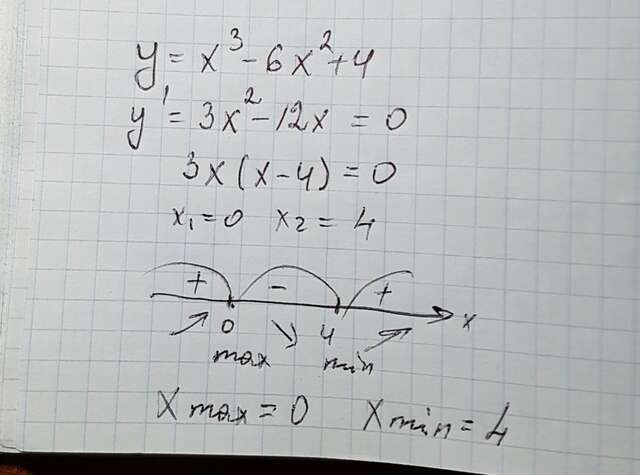 y = x³ - 6x² + 4
y' = 3x² - 12x = 0
3x(x - 4) = 0
x₁ = 0 x₂ = 4
+ - +
0 4 x
max min
X max = 0 X min = 4